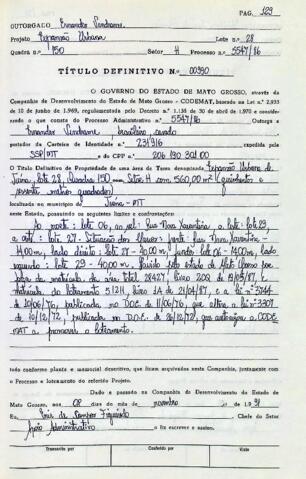 PAG. 129
OUTORGADO Evnander Vendrame
Projeto Expansão Urbana Lote n.º 28
Quadra n.º 150 Setor H Processo n.º 5547/86
TÍTULO DEFINITIVO N.º 00330
O GOVERNO DO ESTADO DE MATO GROSSO, através da
Companhia de Desenvolvimento do Estado de Mato Grosso - CODEMAT, com base na Lei n.º 2.933
de 10 de junho de 1969, regulamentada pelo Decreto n.º 1.138 de 30 de abril de 1970 e considerando
o que consta do Processo Administrativo n.º 5547/86 Outorga a
Evnander Vendrame brasileiro, casado
portador da Carteira de Identidade n.º 231916 expedida pela
SSP/MT e do CPF n.º 206 130 301 00
o Título Definitivo de Propriedade de uma área de Terras denominada Expansão Urbana de
Juína, lote 28, Quadra 150 com Setor H com 560,00 m² (quinhentos e
sessenta metros quadrados)
localizada no município de Juína - MT
neste Estado, possuindo os seguintes limites e confrontações:
Ao norte: lote 06, ao sul: Rua Nova Xavantina, a leste: lote 29,
a oeste: lote 27 - Situação dos Marcos: frente: Rua Nova Xavantina -
14,00 m, lado direito: lote 27 - 40,00 m, fundos: lote 06 - 14,00 m, lado
esquerdo: lote 29 - 40,00 m. Havido pelo estado de Mato Grosso por
matrícula da área total 28427, livro 209, de 19/05/81,
matrícula do loteamento 51211, livro 1A de 21/04/87, e a lei nº 3744
de 10/06/76, publicada no D.O.E. de 11/06/76, que altera a lei nº 3307
de 18/12/72, publicada no D.O.E. de 20/12/72, que autoriza a CODE
MAT a promover o loteamento.
tudo conforme planta e memorial descritivo, que ficam arquivados nesta Companhia, juntamente com
o Processo e loteamento do referido Projeto.
Dado e passado na Companhia de Desenvolvimento do Estado de
Mato Grosso, aos 08 dias do mês de novembro de 1.991
Eu, Luis de Campos Figueiredo Chefe do Setor
Apoio Administrativo o fiz escrever e assino.
Transcrito por Conferido por Visto